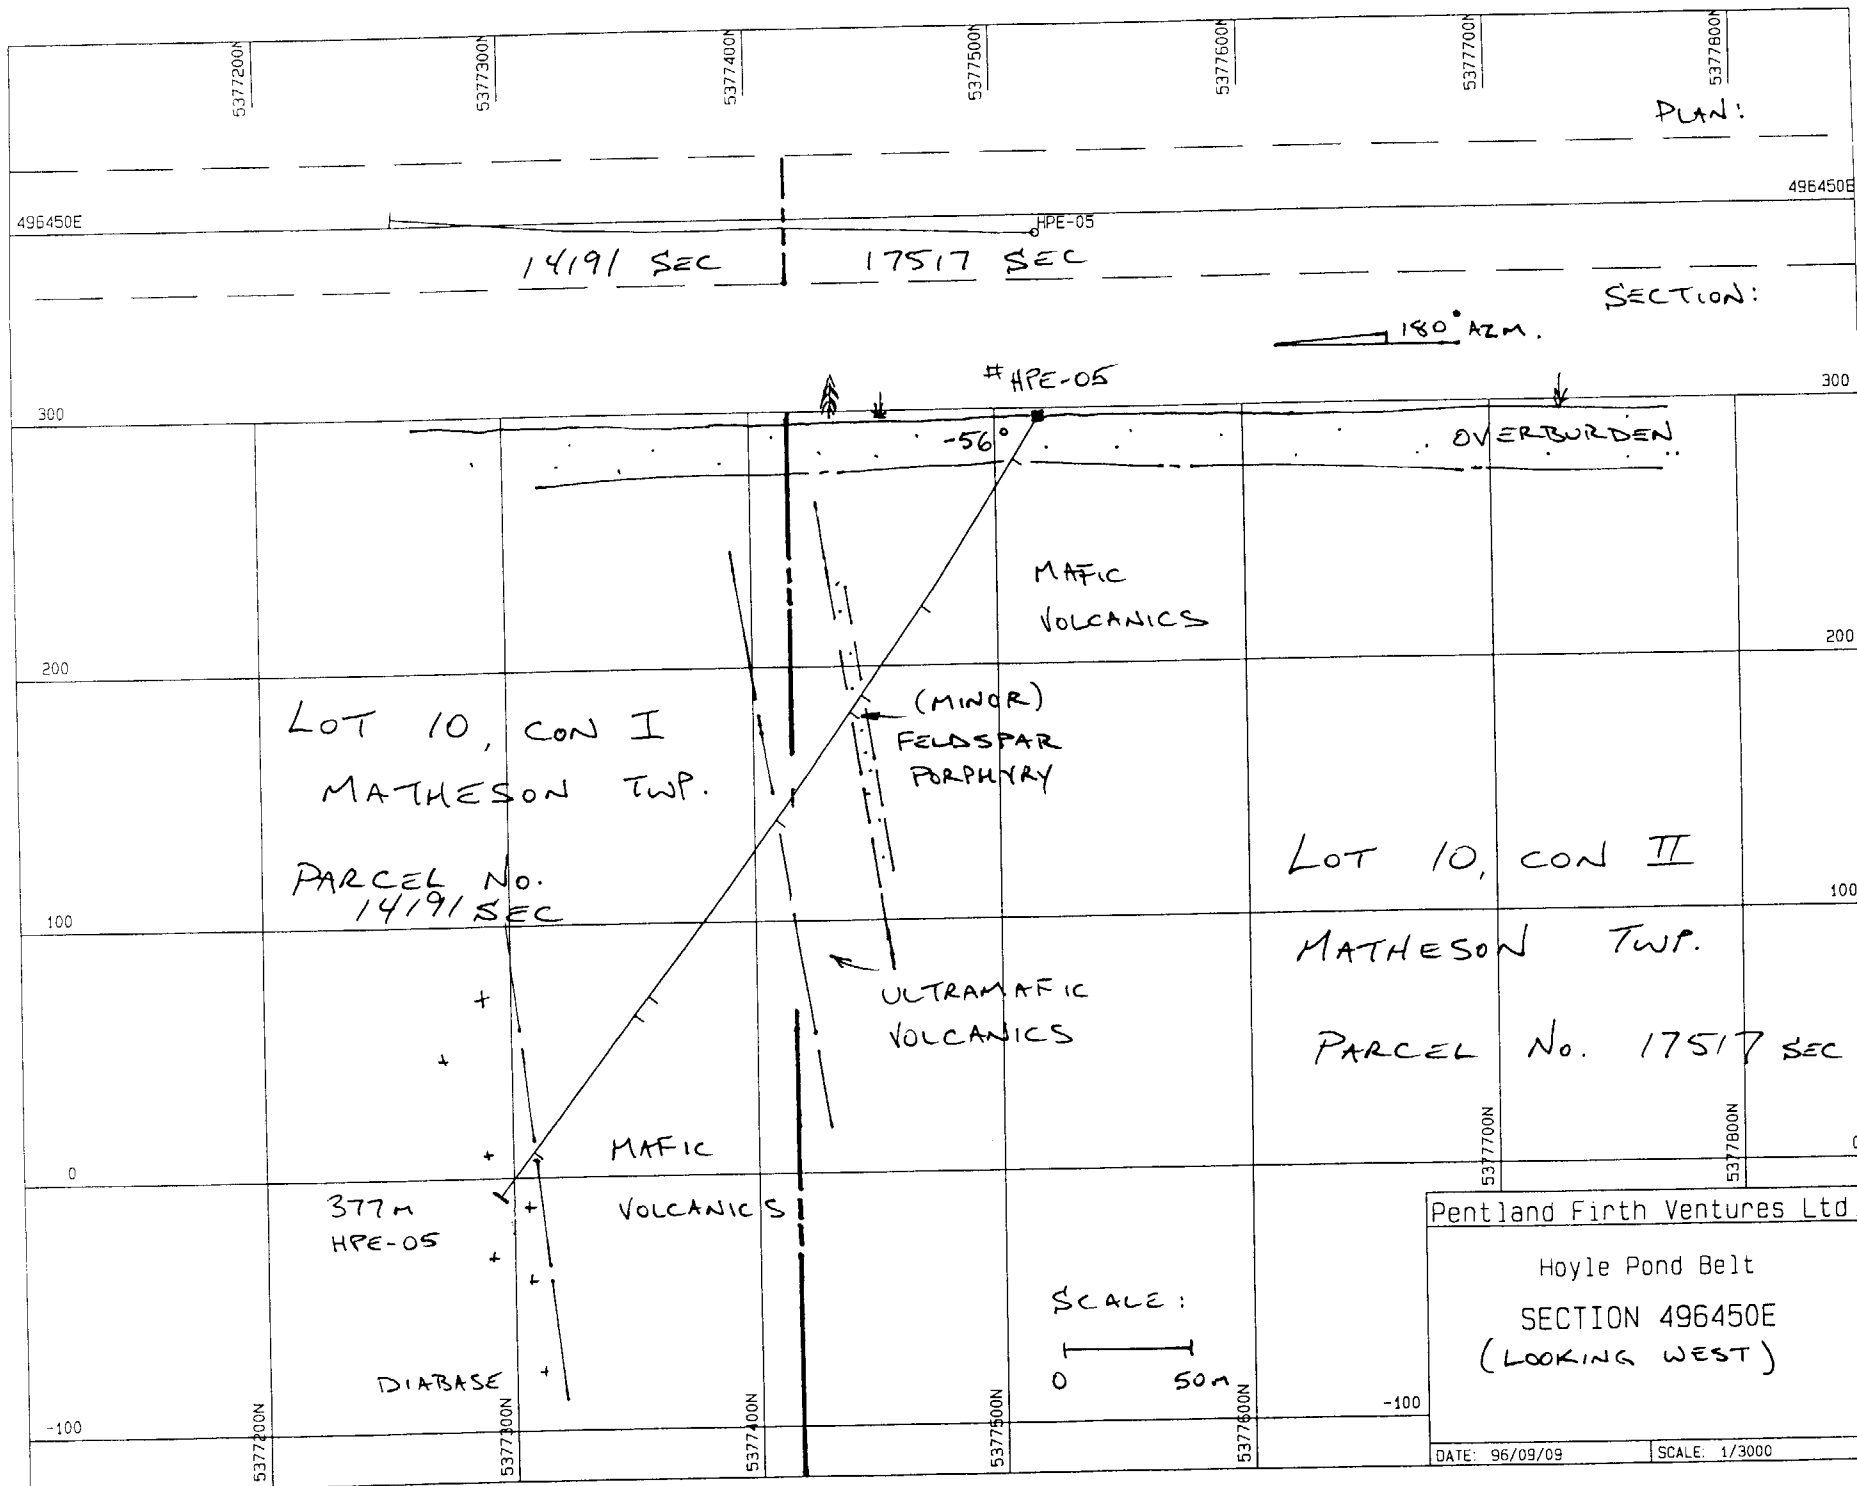 5377200N
5377300N
5377400N
5377500N
5377600N
5377700N
5377800N
PLAN:
496450E
496450E
HPE-05
14191 SEC
17517 SEC
SECTION:
180° AZM.
#HPE-05
300
300
-56°
OVERBURDEN
MAFIC
VOLCANICS
200
200
(MINOR)
FELDSPAR
PORPHYRY
LOT 10, CON I
MATHESON TWP.
PARCEL No.
14191 SEC
LOT 10, CON II
MATHESON TWP.
PARCEL No. 17517 SEC
100
100
ULTRAMAFIC
VOLCANICS
MAFIC
VOLCANICS
0
0
377m
HPE-05
5377700N
5377800N
DIABASE
SCALE:
0 50m
-100
-100
5377200N
5377300N
5377400N
5377500N
5377600N
Pentland Firth Ventures Ltd
Hoyle Pond Belt
SECTION 496450E
(LOOKING WEST)
DATE: 96/09/09
SCALE: 1/3000